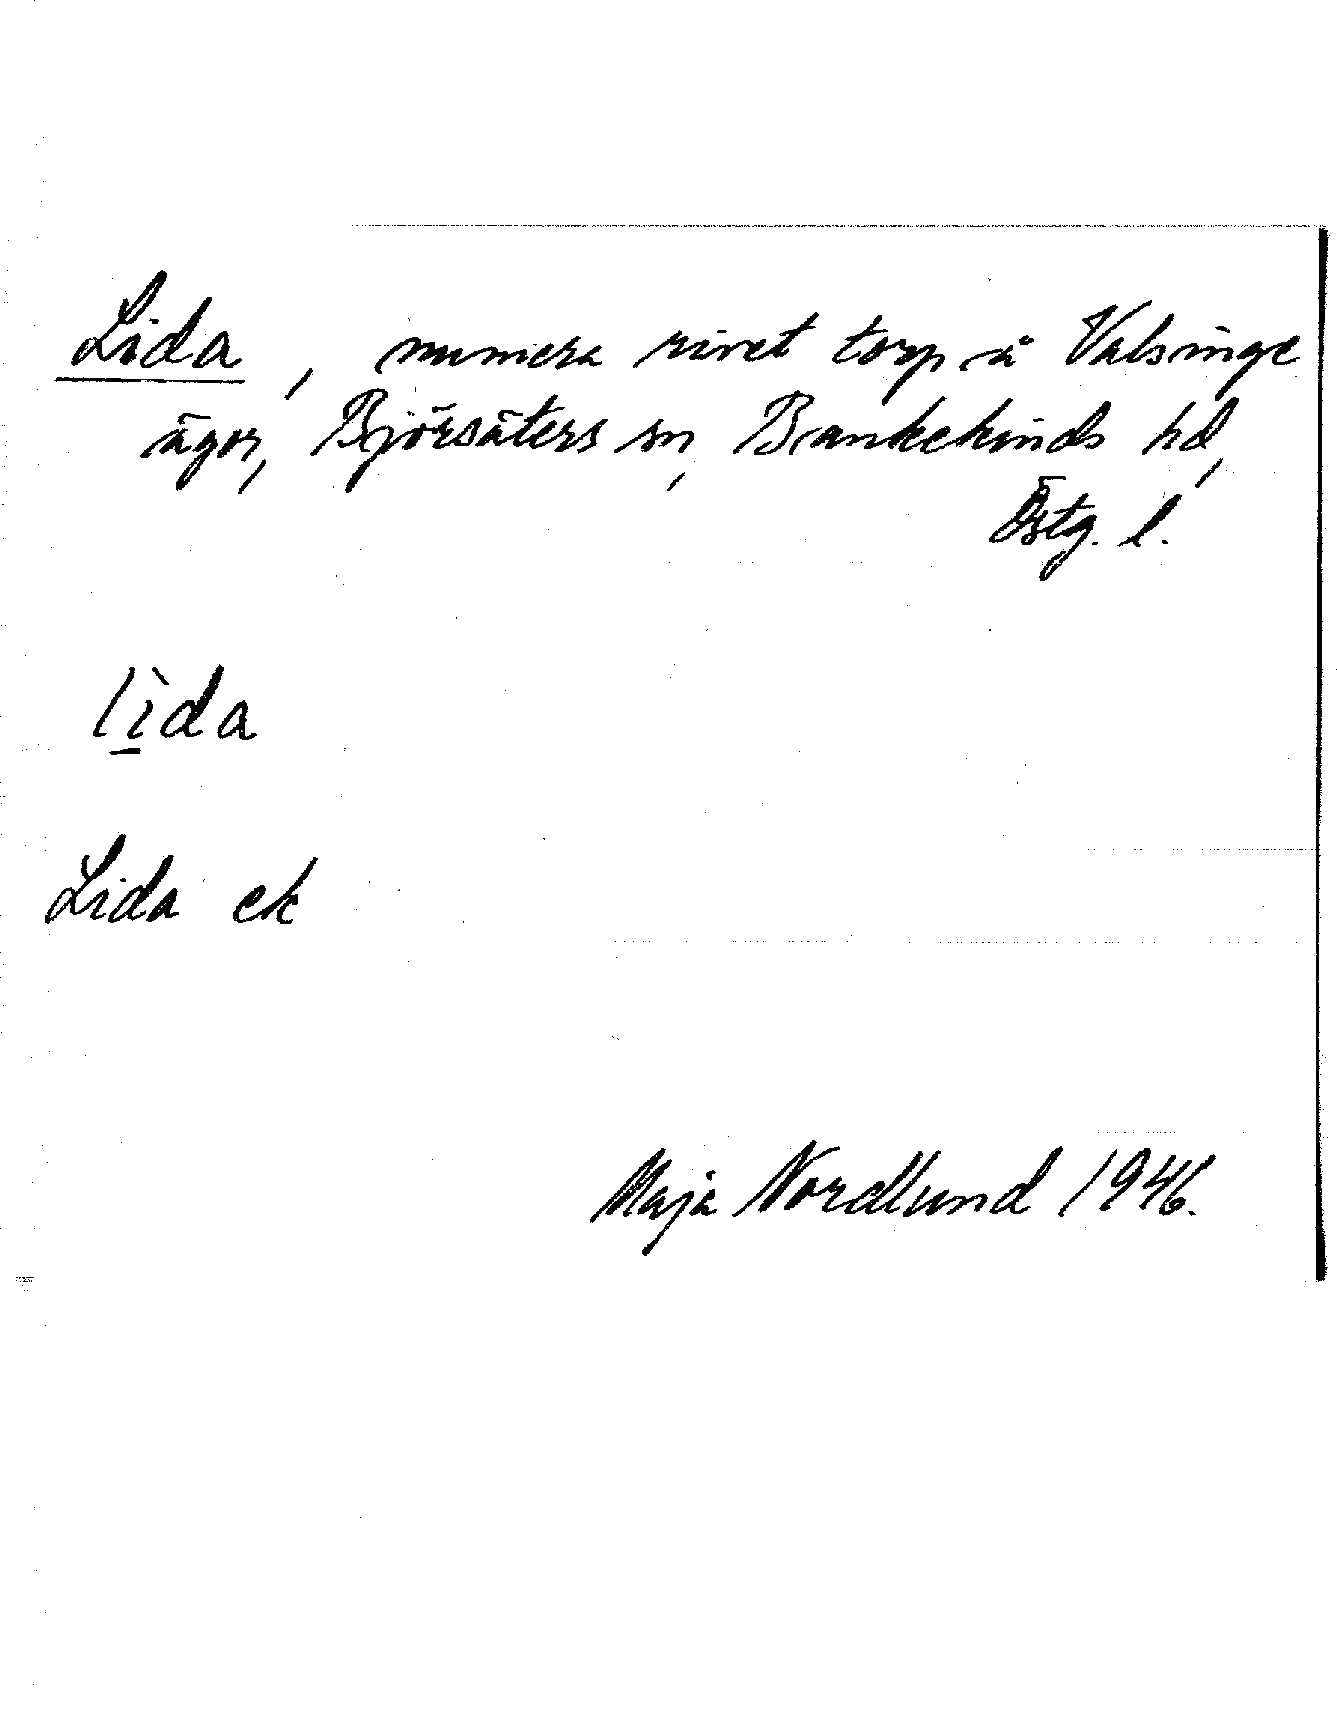 Lida, numera rivet torp å Valsinge
ägor, Björsäters sn, Bankekinds hd,
Östg. l.
lìda
Lida ek
Maja Nordlund 1946.